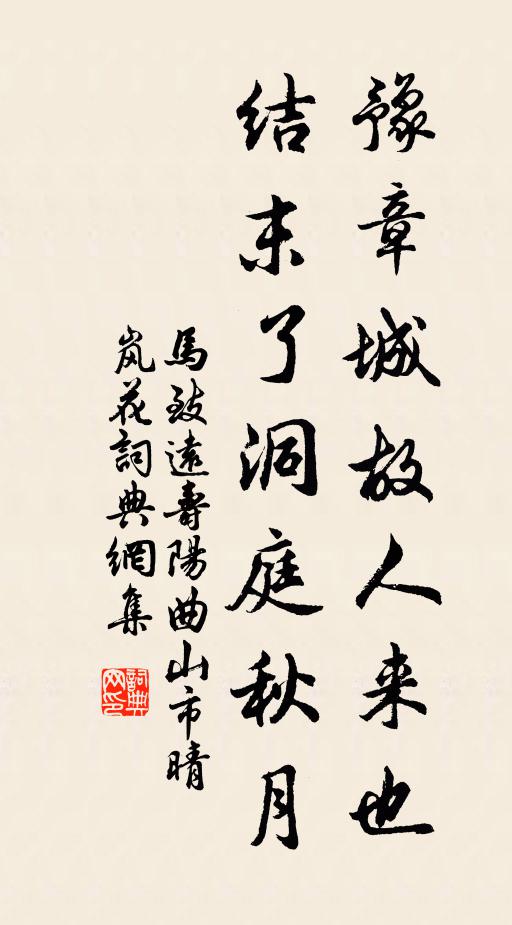 豫章城故人来也
结末了洞庭秋月
馬致遠壽陽曲山市晴
岚花詞典網集
詞典
网印